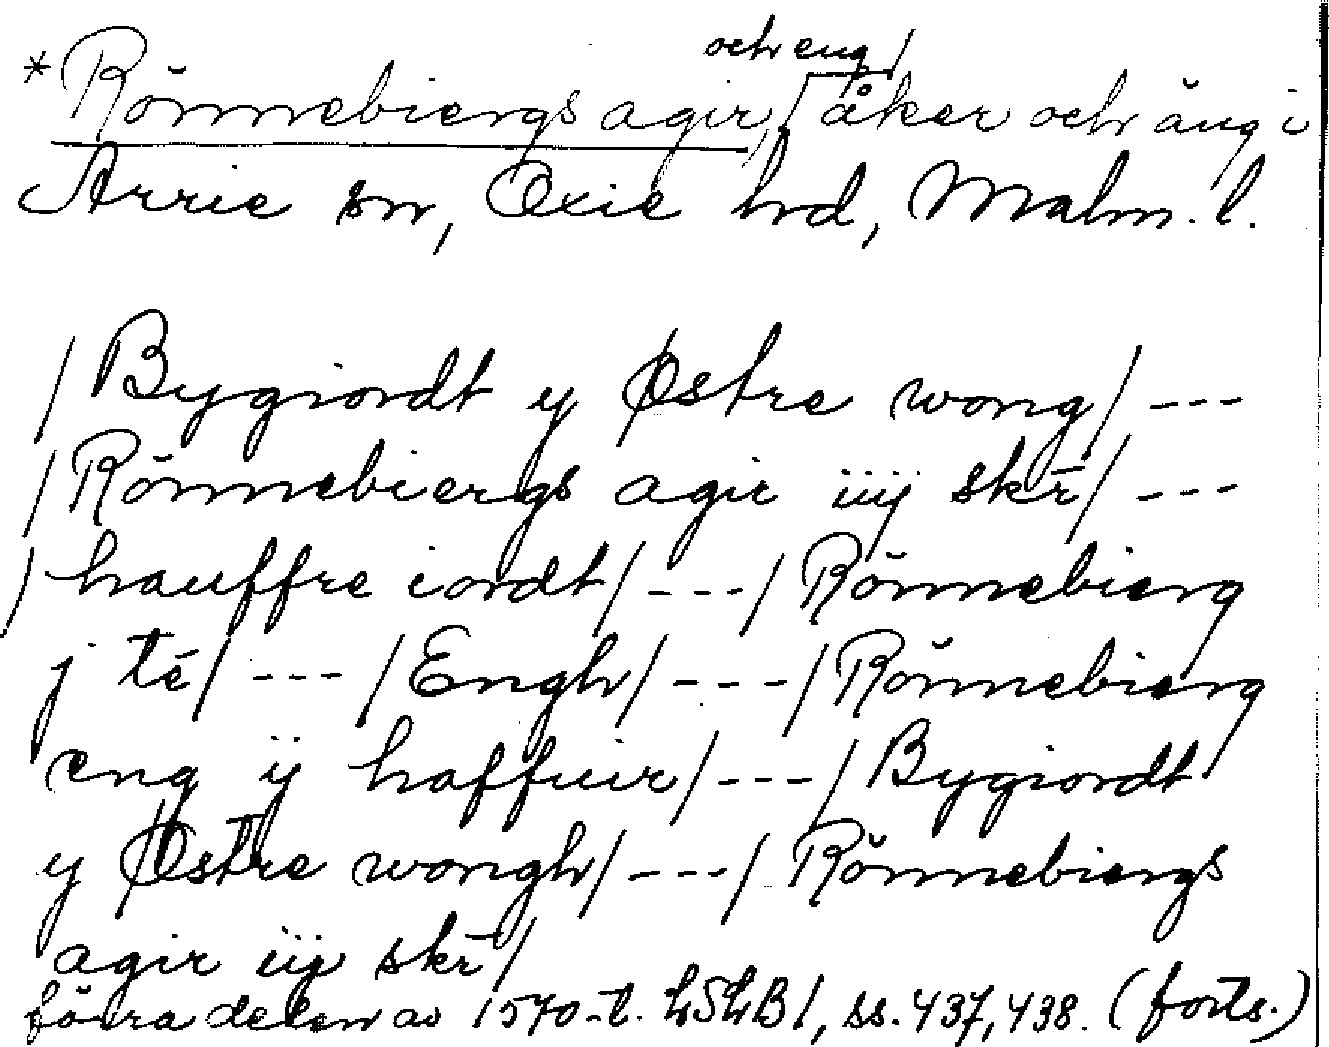 och eng/
*Rönnebiergs agir, åker och äng i
Arrie sn, Oxie hd, Malm. l.
/Bygiordt y Østre wong/ ---
/Rönnebiergs agir iiij skr̄/ ---
/hauffre iordt/ --- /Rönnebierg
j té/ --- /Engh/ --- /Rönnebierg
eng ij haffuir/ --- /Bygiordt
y Østre wongh/ --- /Rönnebiergs
agir iij skr̄/
förra delen av 1570-t. LSLB 1, ss. 437, 438. (forts.)